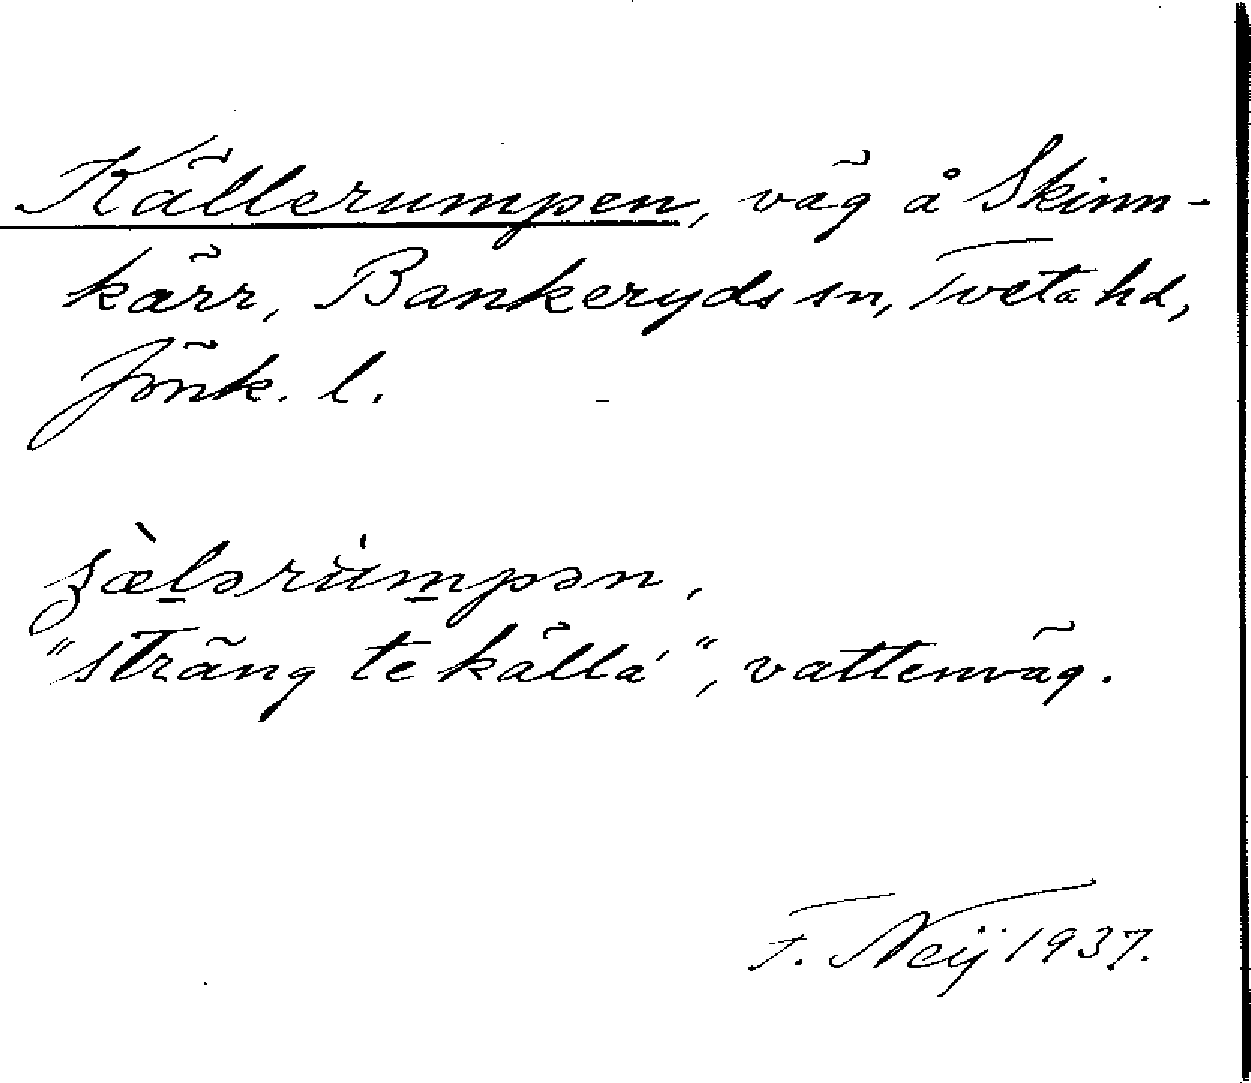 Källerumpen, väg å Skinn-
kärr, Bankeryds sn, Tveta hd,
Jönk. l.
"sträng te källa", vattenväg.
F. Neij 1937.